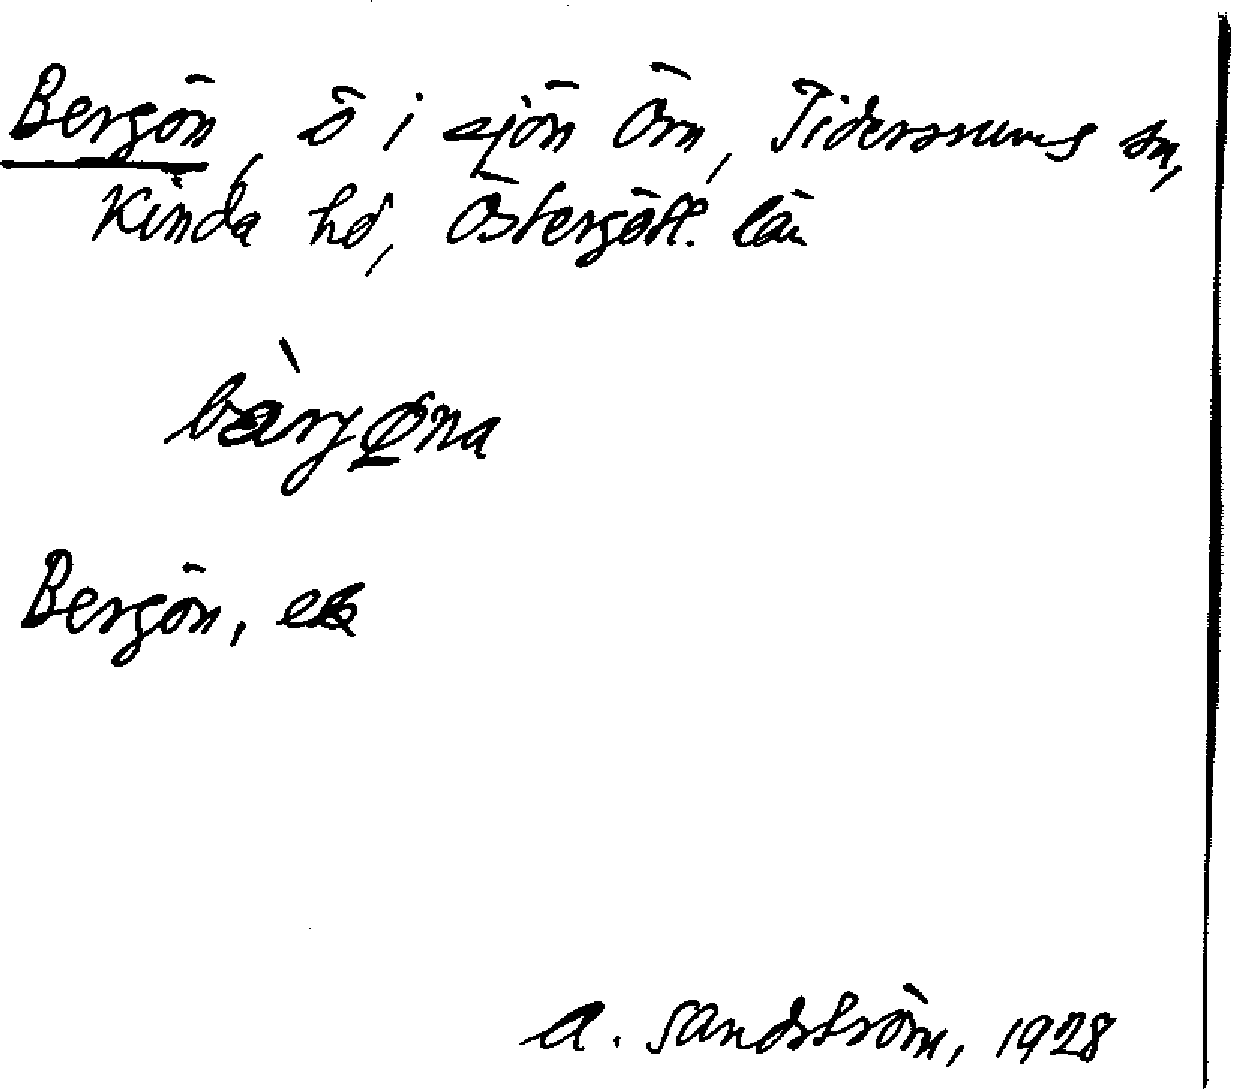 Bergön, ö i sjön Örn, Tidersrums sn,
Kinda hd, Östergötl. län
bæ̀rjøna
Bergön, ek
A. Sandström, 1928